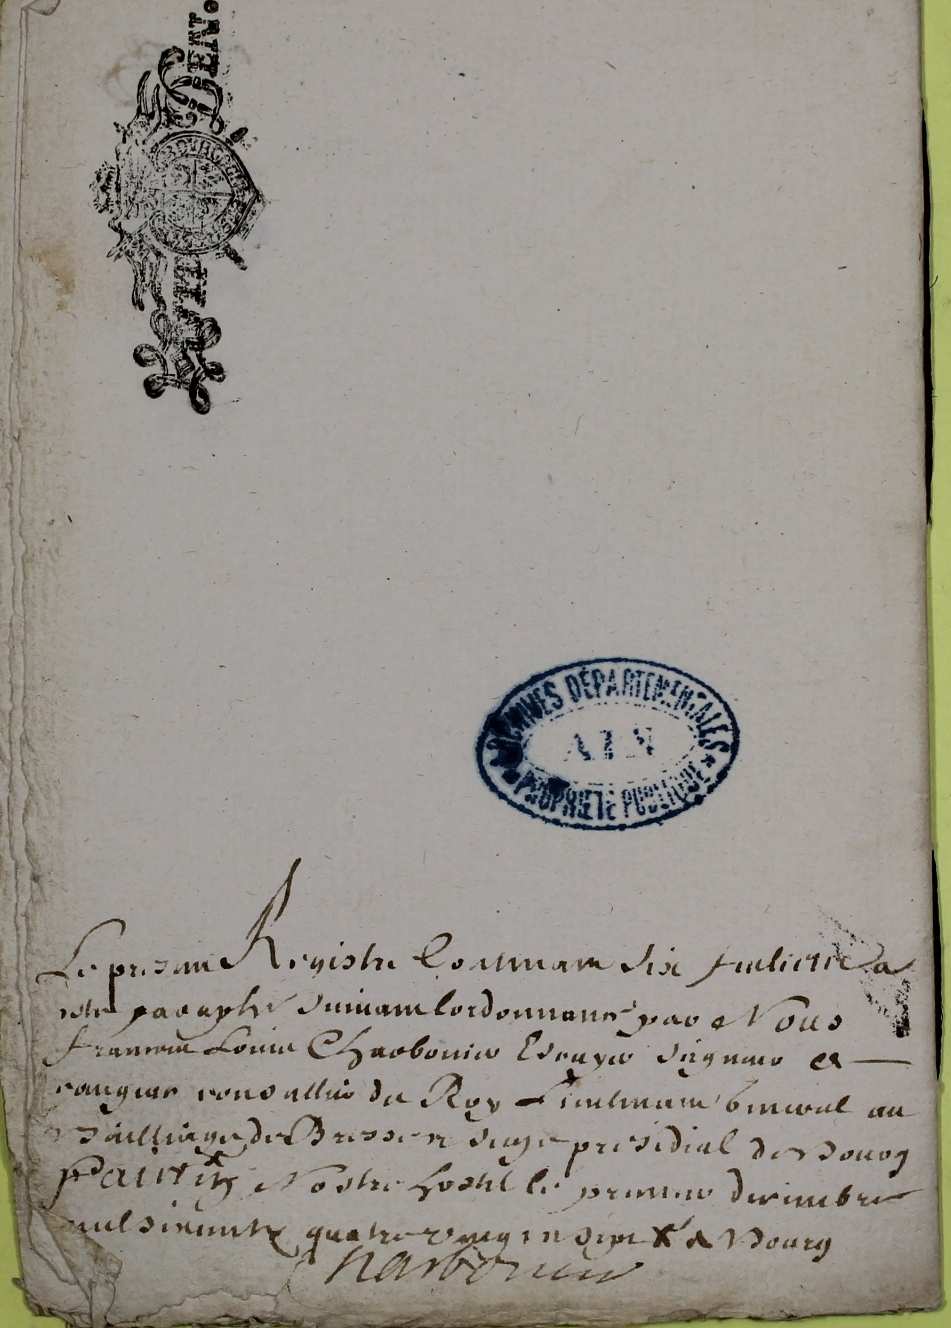 DEN.
ARCHIVES DÉPARTEMENTALES
AIN
PROPRIÉTÉ PUBLIQUE
Le presant Registre Contenant six feulietz a
este paraphé suivant lordonnance par Nous
francois Louis Charbonier Escuyer seigneur et
conseillier du Roy Lieutenant General au
Bailliage de Bresse et siege presidial de Bourg
faict en Nostre hostel le premier decembre
mil six centz quatre vingt
a Bourg
Charbonier